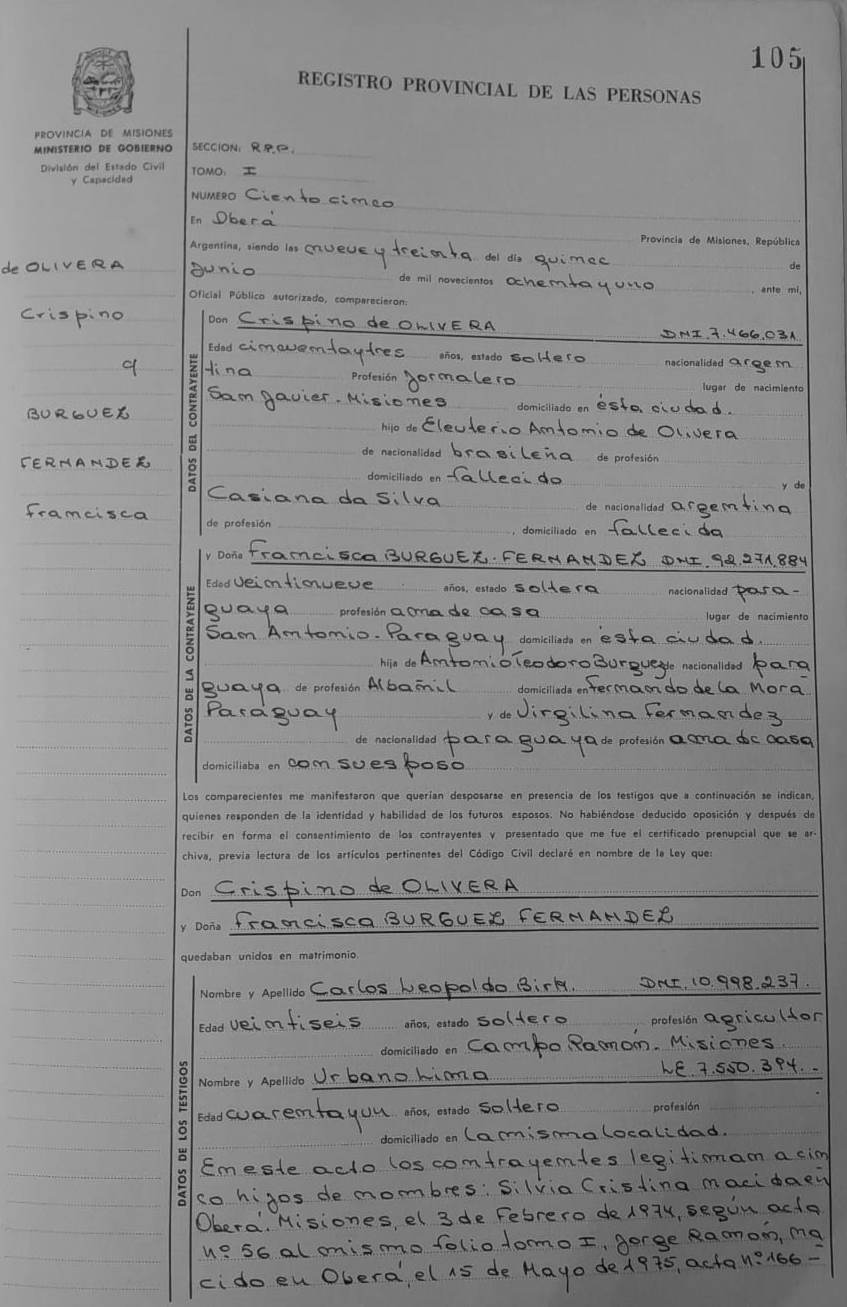 105
REGISTRO PROVINCIAL DE LAS PERSONAS
PROVINCIA DE MISIONES
MINISTERIO DE GOBIERNO
División del Estado Civil
y Capacidad
de OLIVERA
Crispino
c/
BURGUEZ
FERNANDEZ
Francisca
SECCION: R.P.P.
TOMO: I
NUMERO Ciento cinco
En Oberá Provincia de Misiones, República
Argentina, siendo las nueve y treinta del día quince de
Junio de mil novecientos ochenta y uno, ante mi,
Oficial Público autorizado, comparecieron:
DATOS DEL CONTRAYENTE
Don Crispino de OLIVERA DNI.7.466.031
Edad cincuenta y tres años, estado soltero nacionalidad argen
tina Profesión Jornalero lugar de nacimiento
San Javier. Misiones domiciliado en ésta ciudad.
hijo de Eleuterio Antonio de Olivera
de nacionalidad brasileña de profesión
domiciliado en fallecido y de
Casiana da Silva de nacionalidad argentina
de profesión , domiciliado en fallecida
DATOS DE LA CONTRAYENTE
y Doña Francisca BURGUEZ. FERNANDEZ DNI.92.271.884
Edad veintinueve años, estado soltera nacionalidad para-
guaya profesión ama de casa lugar de nacimiento
San Antonio. Paraguay domiciliada en ésta ciudad.
hija de Antonio Teodoro Burguez de nacionalidad para
guaya de profesión Albañil domiciliada en Fernando de la Mora
Paraguay y de Virgilina Fernandez
de nacionalidad paraguaya de profesión ama de casa
domiciliaba en con su esposo
Los comparecientes me manifestaron que querían desposarse en presencia de los testigos que a continuación se indican,
quienes responden de la identidad y habilidad de los futuros esposos. No habiéndose deducido oposición y después de
recibir en forma el consentimiento de los contrayentes y presentado que me fue el certificado prenupcial que se ar-
chiva, previa lectura de los artículos pertinentes del Código Civil declaré en nombre de la Ley que:
Don Crispino de OLIVERA
y Doña Francisca BURGUEZ FERNANDEZ
quedaban unidos en matrimonio.
DATOS DE LOS TESTIGOS
Nombre y Apellido Carlos Leopoldo Birk. DNI.10.998.237.
Edad veintiseis años, estado soltero profesión agricultor
domiciliado en Campo Ramón. Misiones.
Nombre y Apellido Urbano Lima LE.7.550.394.-
Edad cuarenta y un años, estado soltero profesión
domiciliado en la misma localidad.
En este acto los contrayentes legitiman a cin
co hijos de nombres: Silvia Cristina nacida en
Oberá. Misiones, el 3 de Febrero de 1974, según acta
Nº 56 al mismo folio tomo I, Jorge Ramón, na
cido en Oberá, el 15 de Mayo de 1975, acta Nº 166-